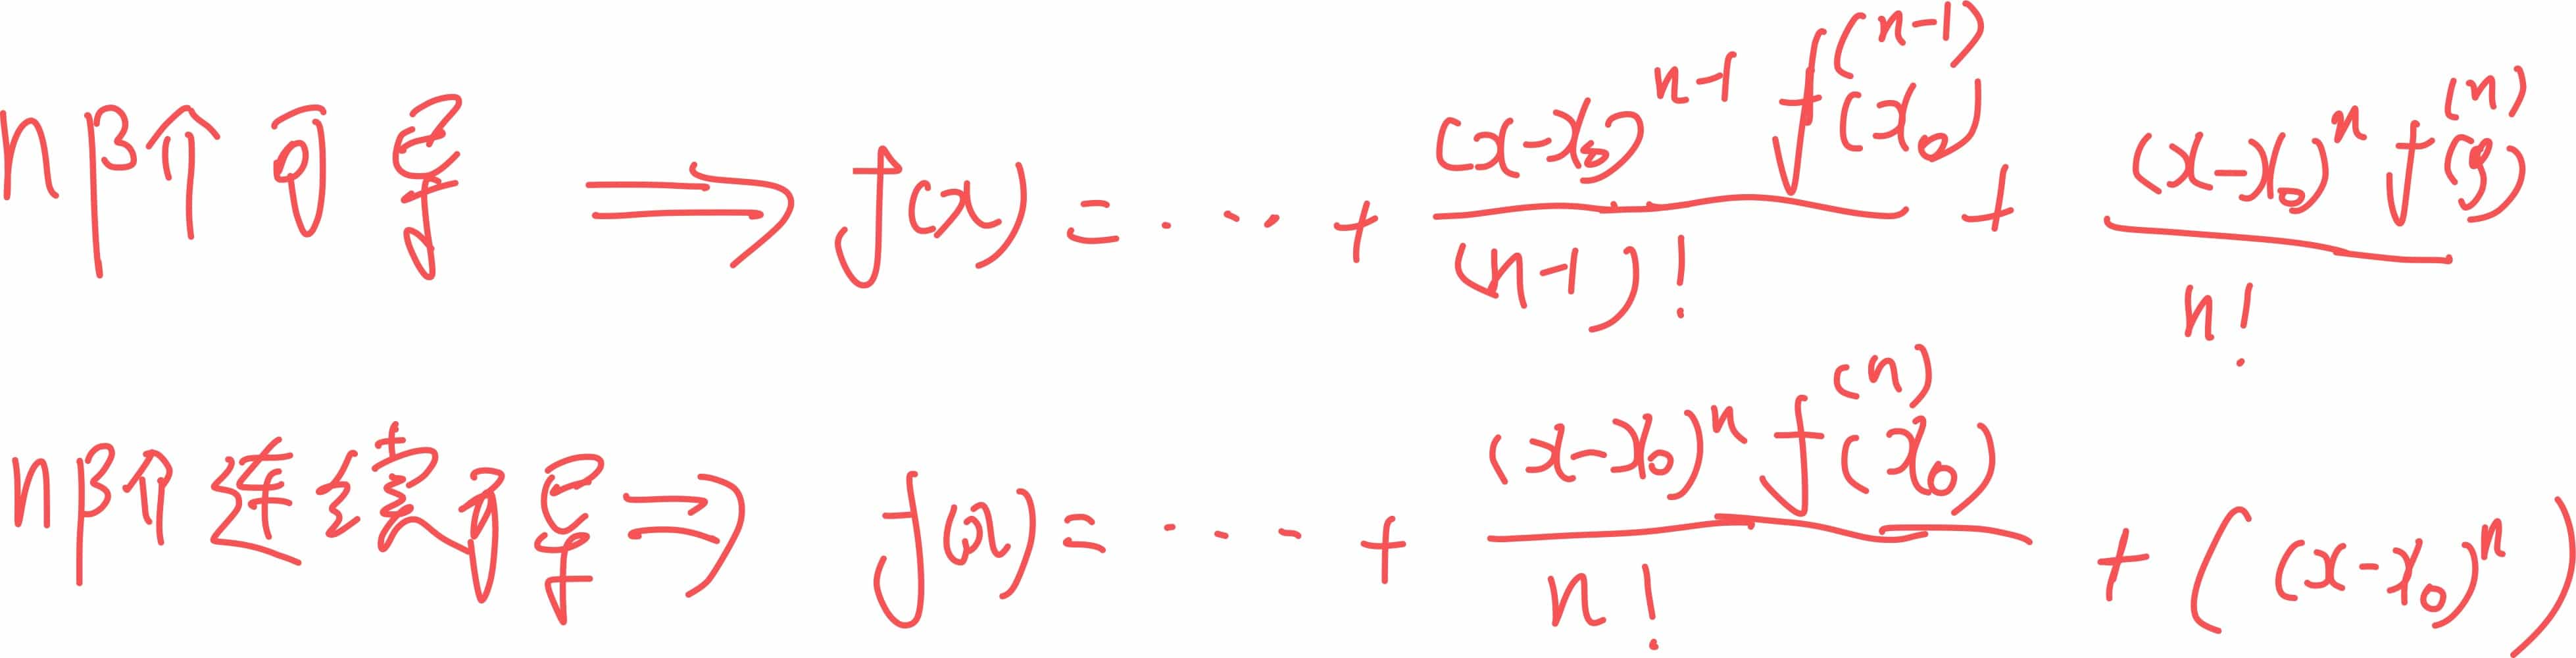 n阶可导 ⟹ f(x) = ⋯ + (x-x₀)ⁿ⁻¹ f⁽ⁿ⁻¹⁾(x₀) / (n-1)! + (x-x₀)ⁿ f⁽ⁿ⁾(ξ) / n!
n阶连续可导 ⟹ f(x) = ⋯ + (x-x₀)ⁿ f⁽ⁿ⁾(x₀) / n! + ((x-x₀)ⁿ)